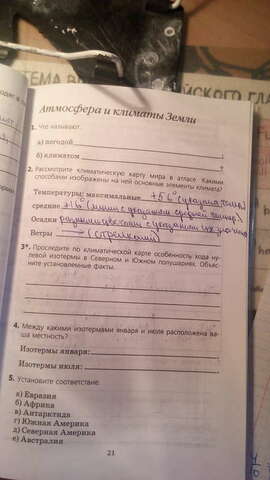 ТЕМА
Атмосфера и климаты Земли
1. Что называют:
а) погодой
б) климатом
2. Рассмотрите климатическую карту мира в атласе. Какими
способами изображены на ней основные элементы климата?
Температуры: максимальные +56° (указана точка)
средние +16° (линии с указанием средней темпер.)
Осадки разными цветами с указанием их
Ветры → (стрелками)
3*. Проследите по климатической карте особенность хода ну-
левой изотермы в Северном и Южном полушариях. Объяс-
ните установленные факты.
4. Между какими изотермами января и июля расположена ва-
ша местность?
Изотермы января:
Изотермы июля:
5. Установите соответствие.
а) Евразия
б) Африка
в) Антарктида
г) Южная Америка
д) Северная Америка
е) Австралия
21